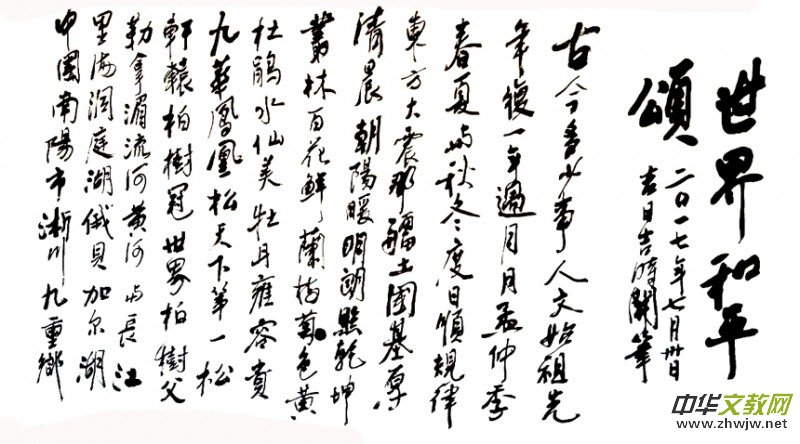 世界和平
頌
二〇一七年七月卅日
吉日吉時開筆
古今多少事人文始祖先
年復一年過月月孟仲季
春夏与秋冬度日順規律
東方大震那疆土國基厚
清晨朝陽暖明朗照乾坤
叢林百花鮮蘭梅菊色黃
杜鵑水仙美牡丹雍容貴
九華鳳凰松天下第一松
軒轅柏樹冠世界柏樹父
勒拿湄流河黃河与長江
里海洞庭湖俄貝加尔湖
中国南陽市淅川九重鄉
中华文教网
www.zhwjw.net